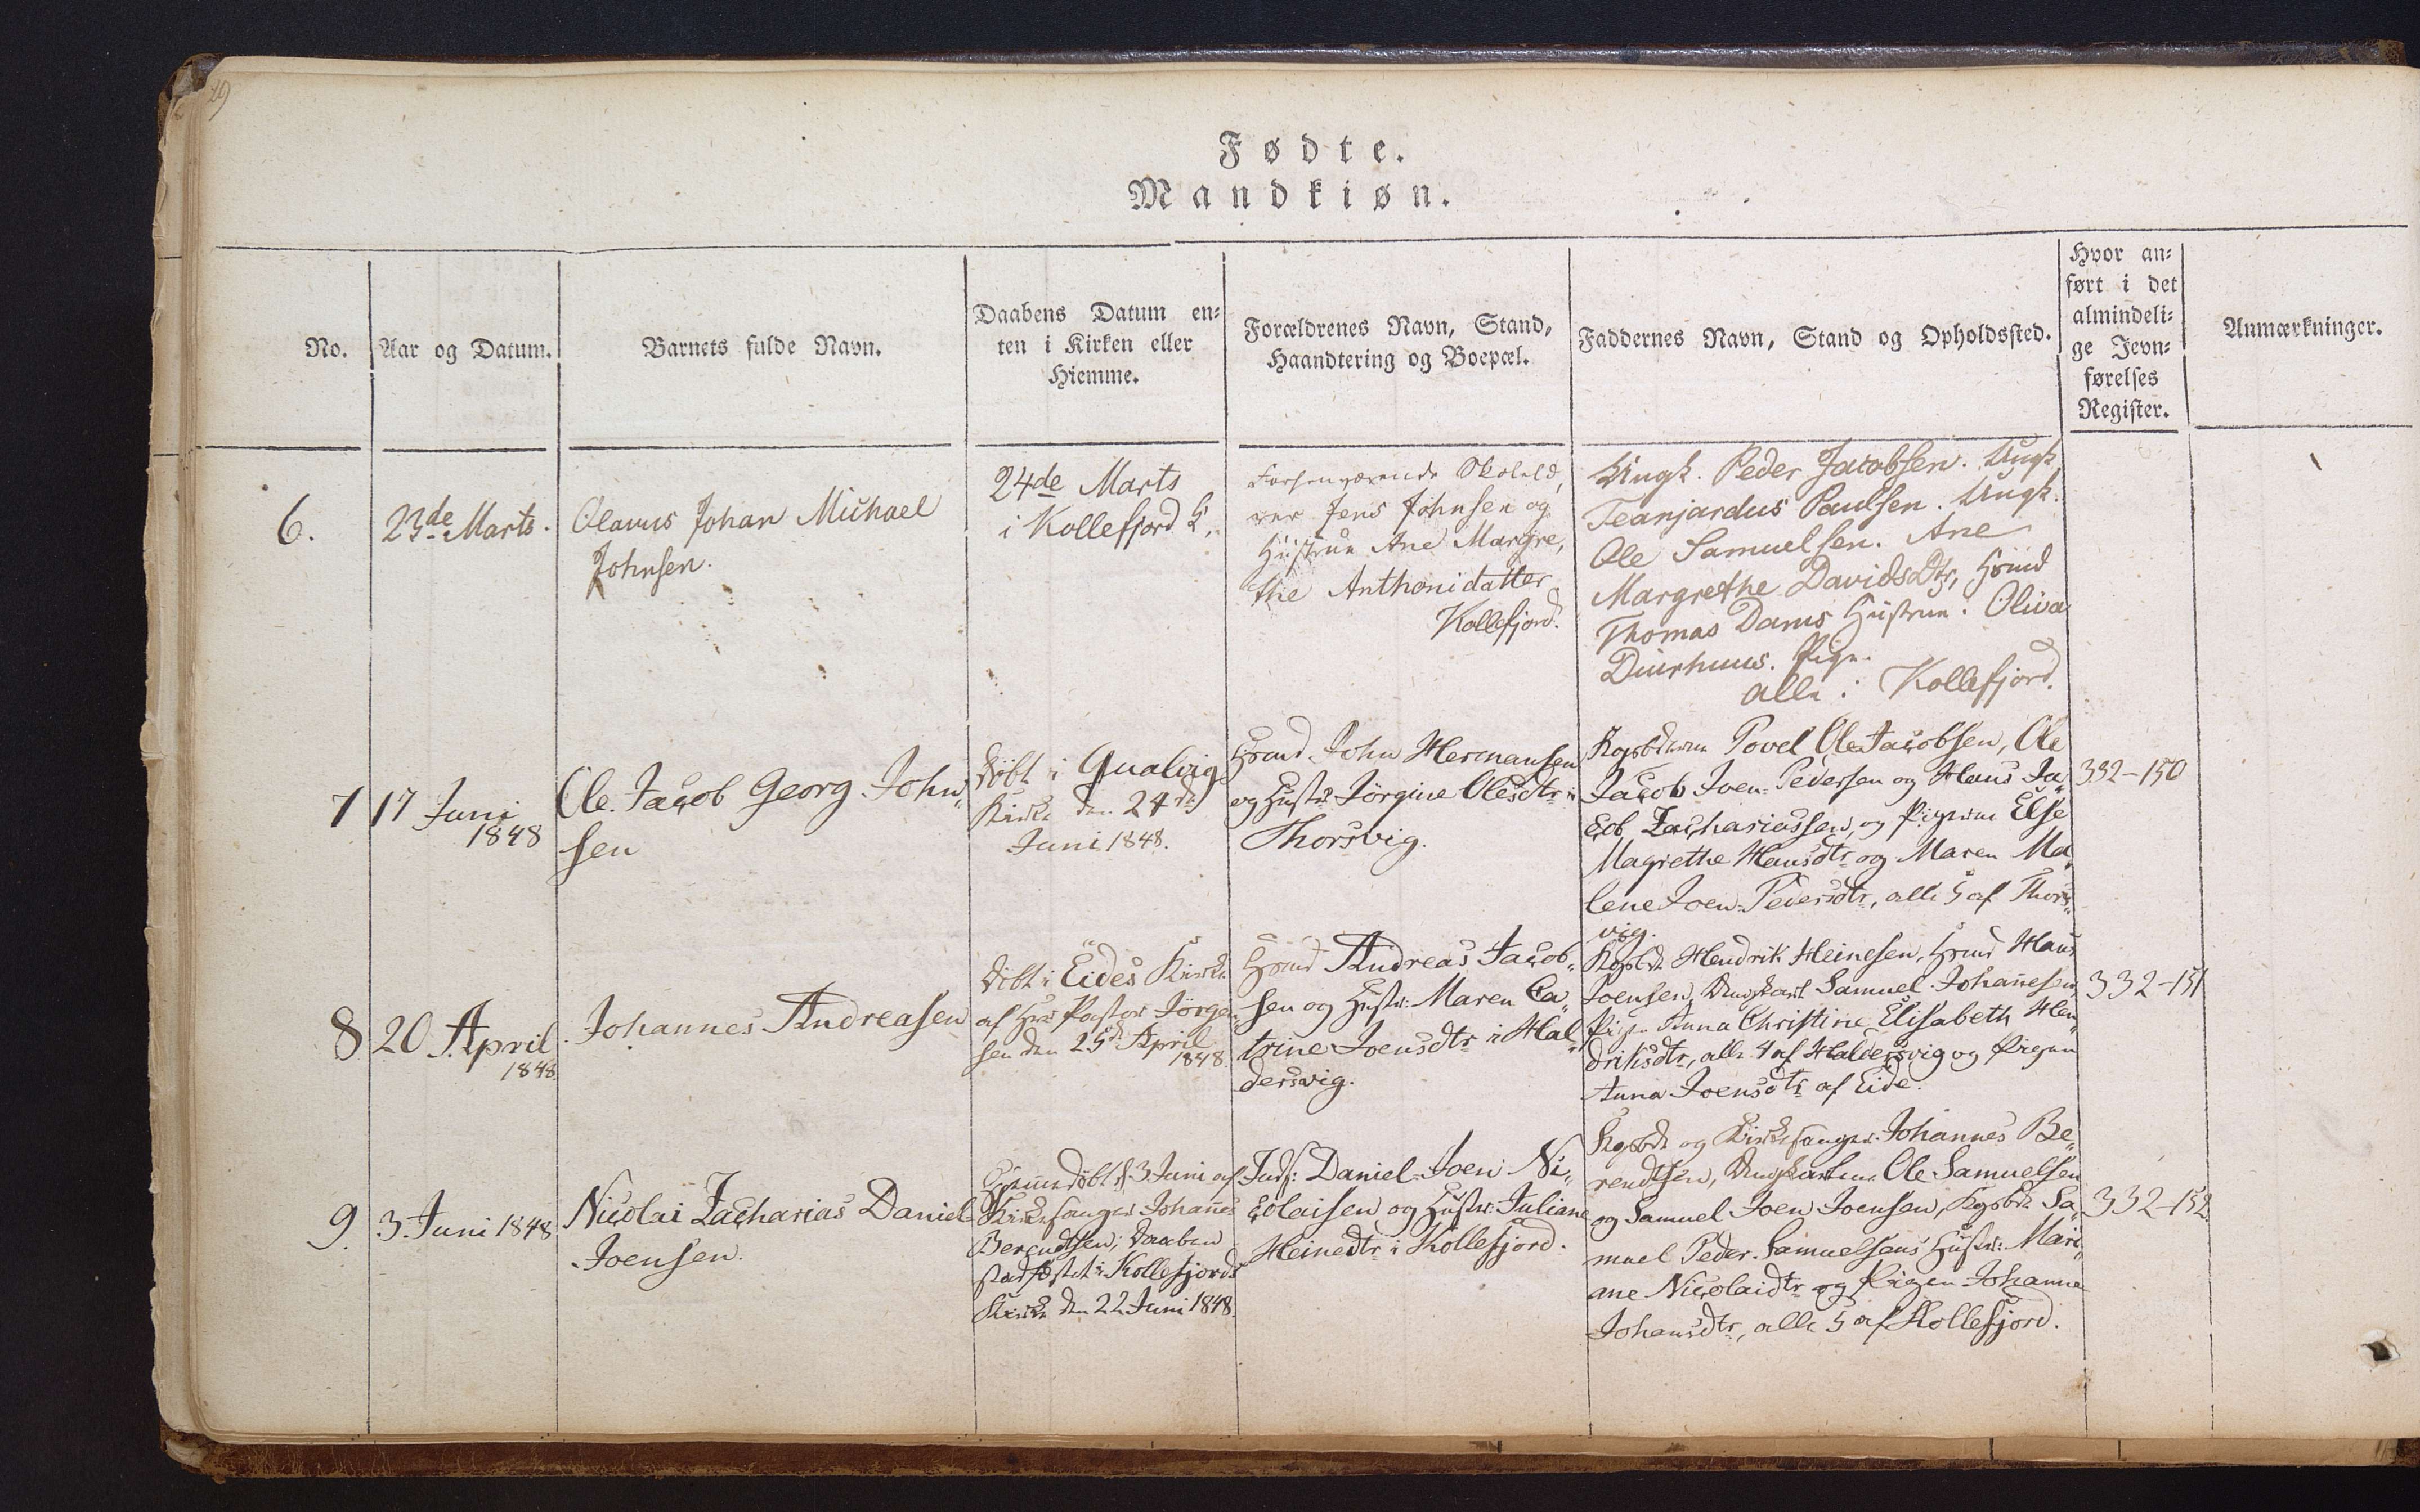 29
Fødte.
Mandkiøn.
No.
Aar og Datum.
Barnets fulde Navn.
Daabens Datum en-
ten i Kirken eller
Hiemme.
Forældrenes Navn, Stand,
Haandtering og Boepæl.
Faddernes Navn, Stand og Opholdssted.
Hvor an-
ført i det
almindeli-
ge Jevn-
førelses
Register.
Anmærkninger.
6.
23de Marts.
Olavus Johan Michael
Johnsen.
24de Marts
i Kollefjord K.
Forhenværende Skolelæ,
rer Jens Johnsen og
Hustrue Ane Margre,
the Anthonidatter
Kollefjord.
Ungk. Peder Jacobsen. Ungk.
Teanjardus Paulsen. Ungk.
Ole Samuelsen. Ane
Margrethe DavidsDtr, Hsmd
Thomas Dams Hustrue. Oliva
Diurhuus. Pige.
alle i Kollefjord.
7
17 Juni
1848
Ole Jacob Georg John„
sen
døbt i Qualvig
Kirke den 24de
Juni 1848.
Hsmd. John Hermansen
og Hustr Jørgine Olesdtr i
Thorsvig.
Kgsbdrne Povel Ole Jacobsen, Ole
Jacob Joen-Pedersen og Hans Ja„
cob Zachariassen, og Pigerne Else
Magrethe Hansdtr og Maren Ma„
lene Joen-Pedersdtr, alle 5 af Thors„
vig.
332-150
8
20 April
1848.
Johannes Andreasen
døbt i Eides Kirke
af Hr Pastor Jørgen„
sen den 25de April
1848.
Hsmd Andreas Jacob„
sen og Hustr: Maren Ca„
trine Joensdtr i Hal„
dersvig.
Kgsbde Hendrik Heinesen, Hsmd Hans
Joensen, Ungkarl Samuel Johannesen
Pige Anna Christine Elisabeth Hen„
driksdtr, alle 4 af Haldersvig og Pigen
Anna Joensdtr af Eide.
332-151
9.
3. Juni 1848.
Nicolai Zacharias Daniel-
Joensen.
Hjemmedøbt d. 3 Juni af
Kirkesanger Johannes
Berendtsen; Daaben
stadfæstet i Kollefjords
Kirke den 22 Juni 1848.
Inds: Daniel-Joen Ni„
colaisen og Hustr: Juliane
Heinedtr i Kollefjord.
Kgsbde og Kirkesanger Johannes Be„
rendtsen, Ungkarlene Ole Samuelsen
og Samuel Joen Joensen, Kgsbde Sa„
muel Peder Samuelsens Hustr: Mari„
ane Nicolaidtr og Pigen Johanne
Johansdtr, alle 5 af Kollefjord.
332-152